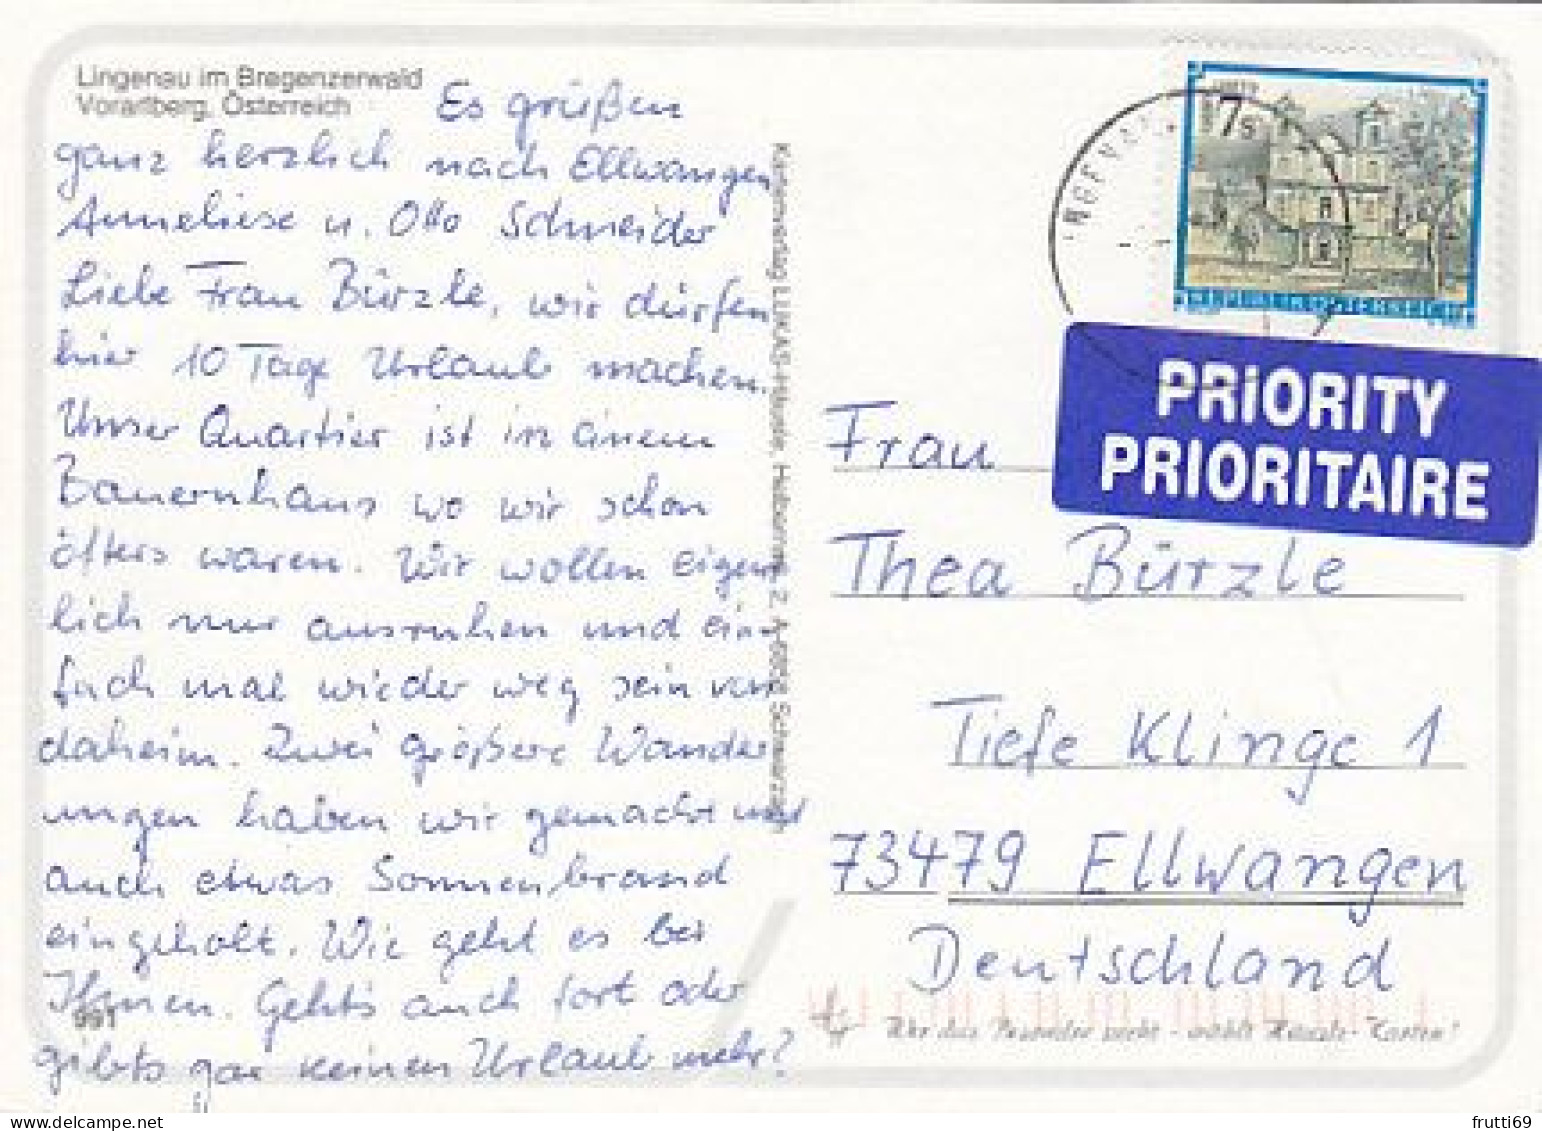 Lingenau im Bregenzerwald
Vorarlberg, Österreich
Es grüßen
ganz herzlich nach Ellwangen
Anneliese u. Otto Schneider
Liebe Frau Bürzle, wir dürfen
hier 10 Tage Urlaub machen.
Unser Quartier ist in einem
Bauernhaus wo wir schon
öfters waren. Wir wollen eigent
lich nur ausruhen und ein-
fach mal wieder weg sein von
daheim. Zwei größere Wander
ungen haben wir gemacht und
auch etwas Sonnenbrand
eingeholt. Wie geht es bei
Ihnen. Gehts auch fort oder
gibts gar keinen Urlaub mehr?
991
Kartenverlag LUKAS-Häusle, 2, Schwarzach
7s
REPUBLIK ÖSTERREICH
PRIORITY
PRIORITAIRE
Frau
Thea Bürzle
Tiefe Klinge 1
73479 Ellwangen
Deutschland
Wer das Besondere sucht - wählt Häusle-Karten!
frutti69